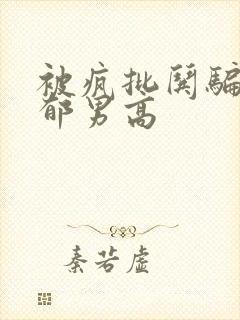 被疯批阴骗
郁男高
秦若虚